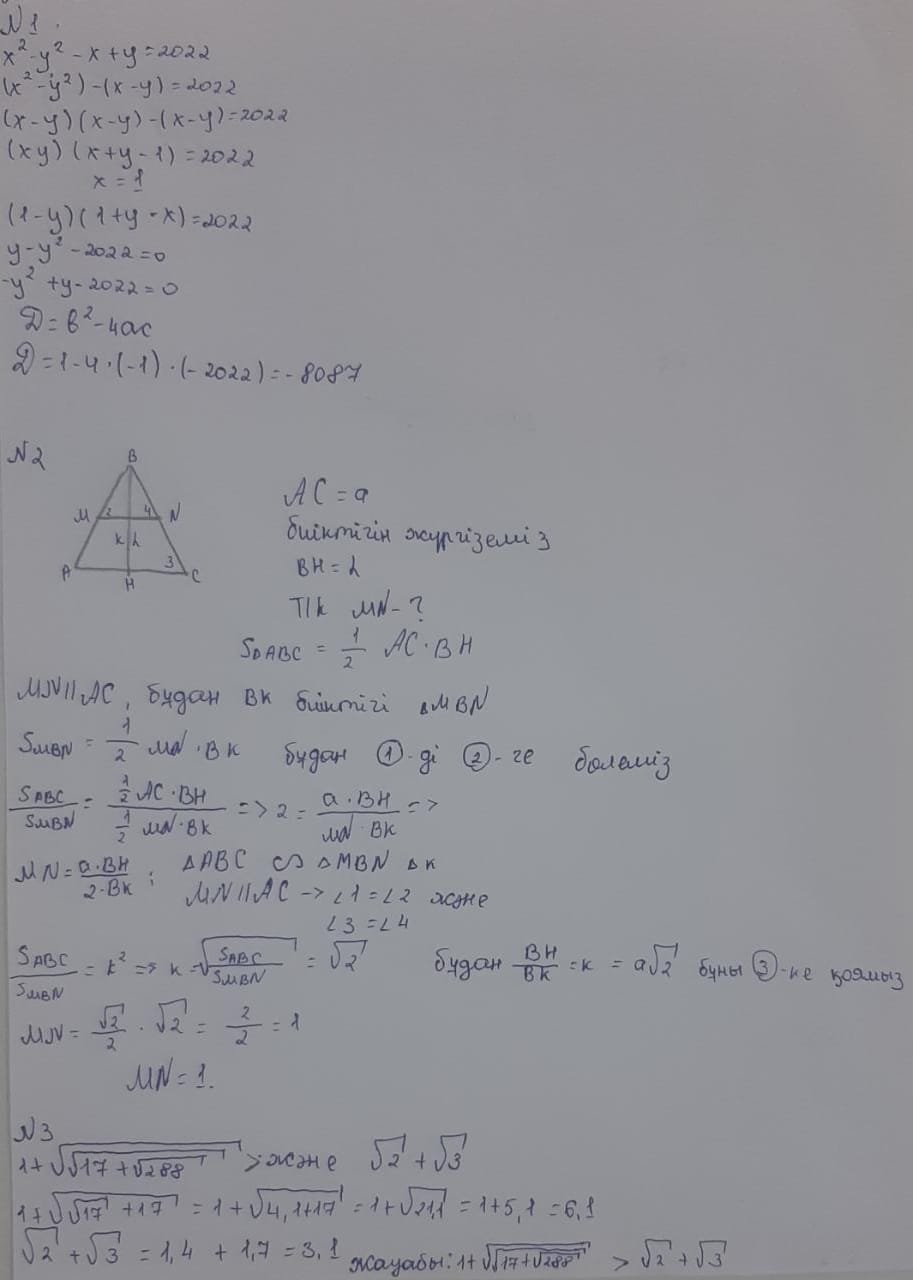 №1.
x²-y²-x+y=2022
(x²-y²)-(x-y)=2022
(x-y)(x-y)-(x-y)=2022
(xy)(x+y-1)=2022
x=1
(1-y)(1+y-x)=2022
y-y²-2022=0
-y²+y-2022=0
D=b²-4ac
D=1-4·(-1)·(-2022)=-8087
№2
B
M 2 4 N
K h
A H 3 C
AC=a
биіктігін жүргіземіз
BH=h
Т/к MN-?
S∆ABC = 1/2 AC·BH
MN||AC, бұдан BK биіктігі ∆MBN
SMBN = 1/2 MN·BK бұдан ①-ді ②-ге бөлеміз
SABC/SMBN = (1/2 AC·BH)/(1/2 MN·BK) => 2 = a·BH/MN·BK =>
MN = a·BH/2·BK; ∆ABC ∽ ∆MBN ∆K
MN||AC -> ∠1=∠2 және
∠3=∠4
SABC/SMBN = k² => k = √(SABC/SMBN) = √2 бұдан BH/BK = k = a√2 бұны ③-ке қоямыз
MN = √2/2 · √2 = 2/2 = 1
MN=1.
№3
1+√√17+√288 > және √2+√3
1+√√17+17 = 1+√4,1+17 = 1+√21,1 = 1+5,1 = 6,1
√2+√3 = 1,4+1,7 = 3,1 жауабы: 1+√√17+√288 > √2+√3